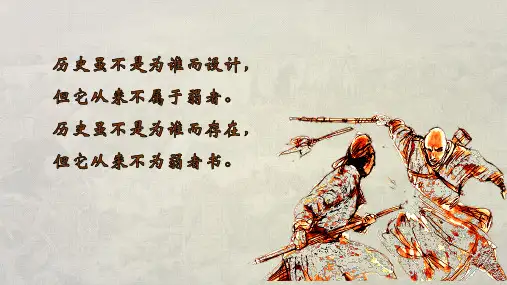 历史虽不是为谁而设计，
但它从来不属于弱者。
历史虽不是为谁而存在，
但它从来不为弱者书。